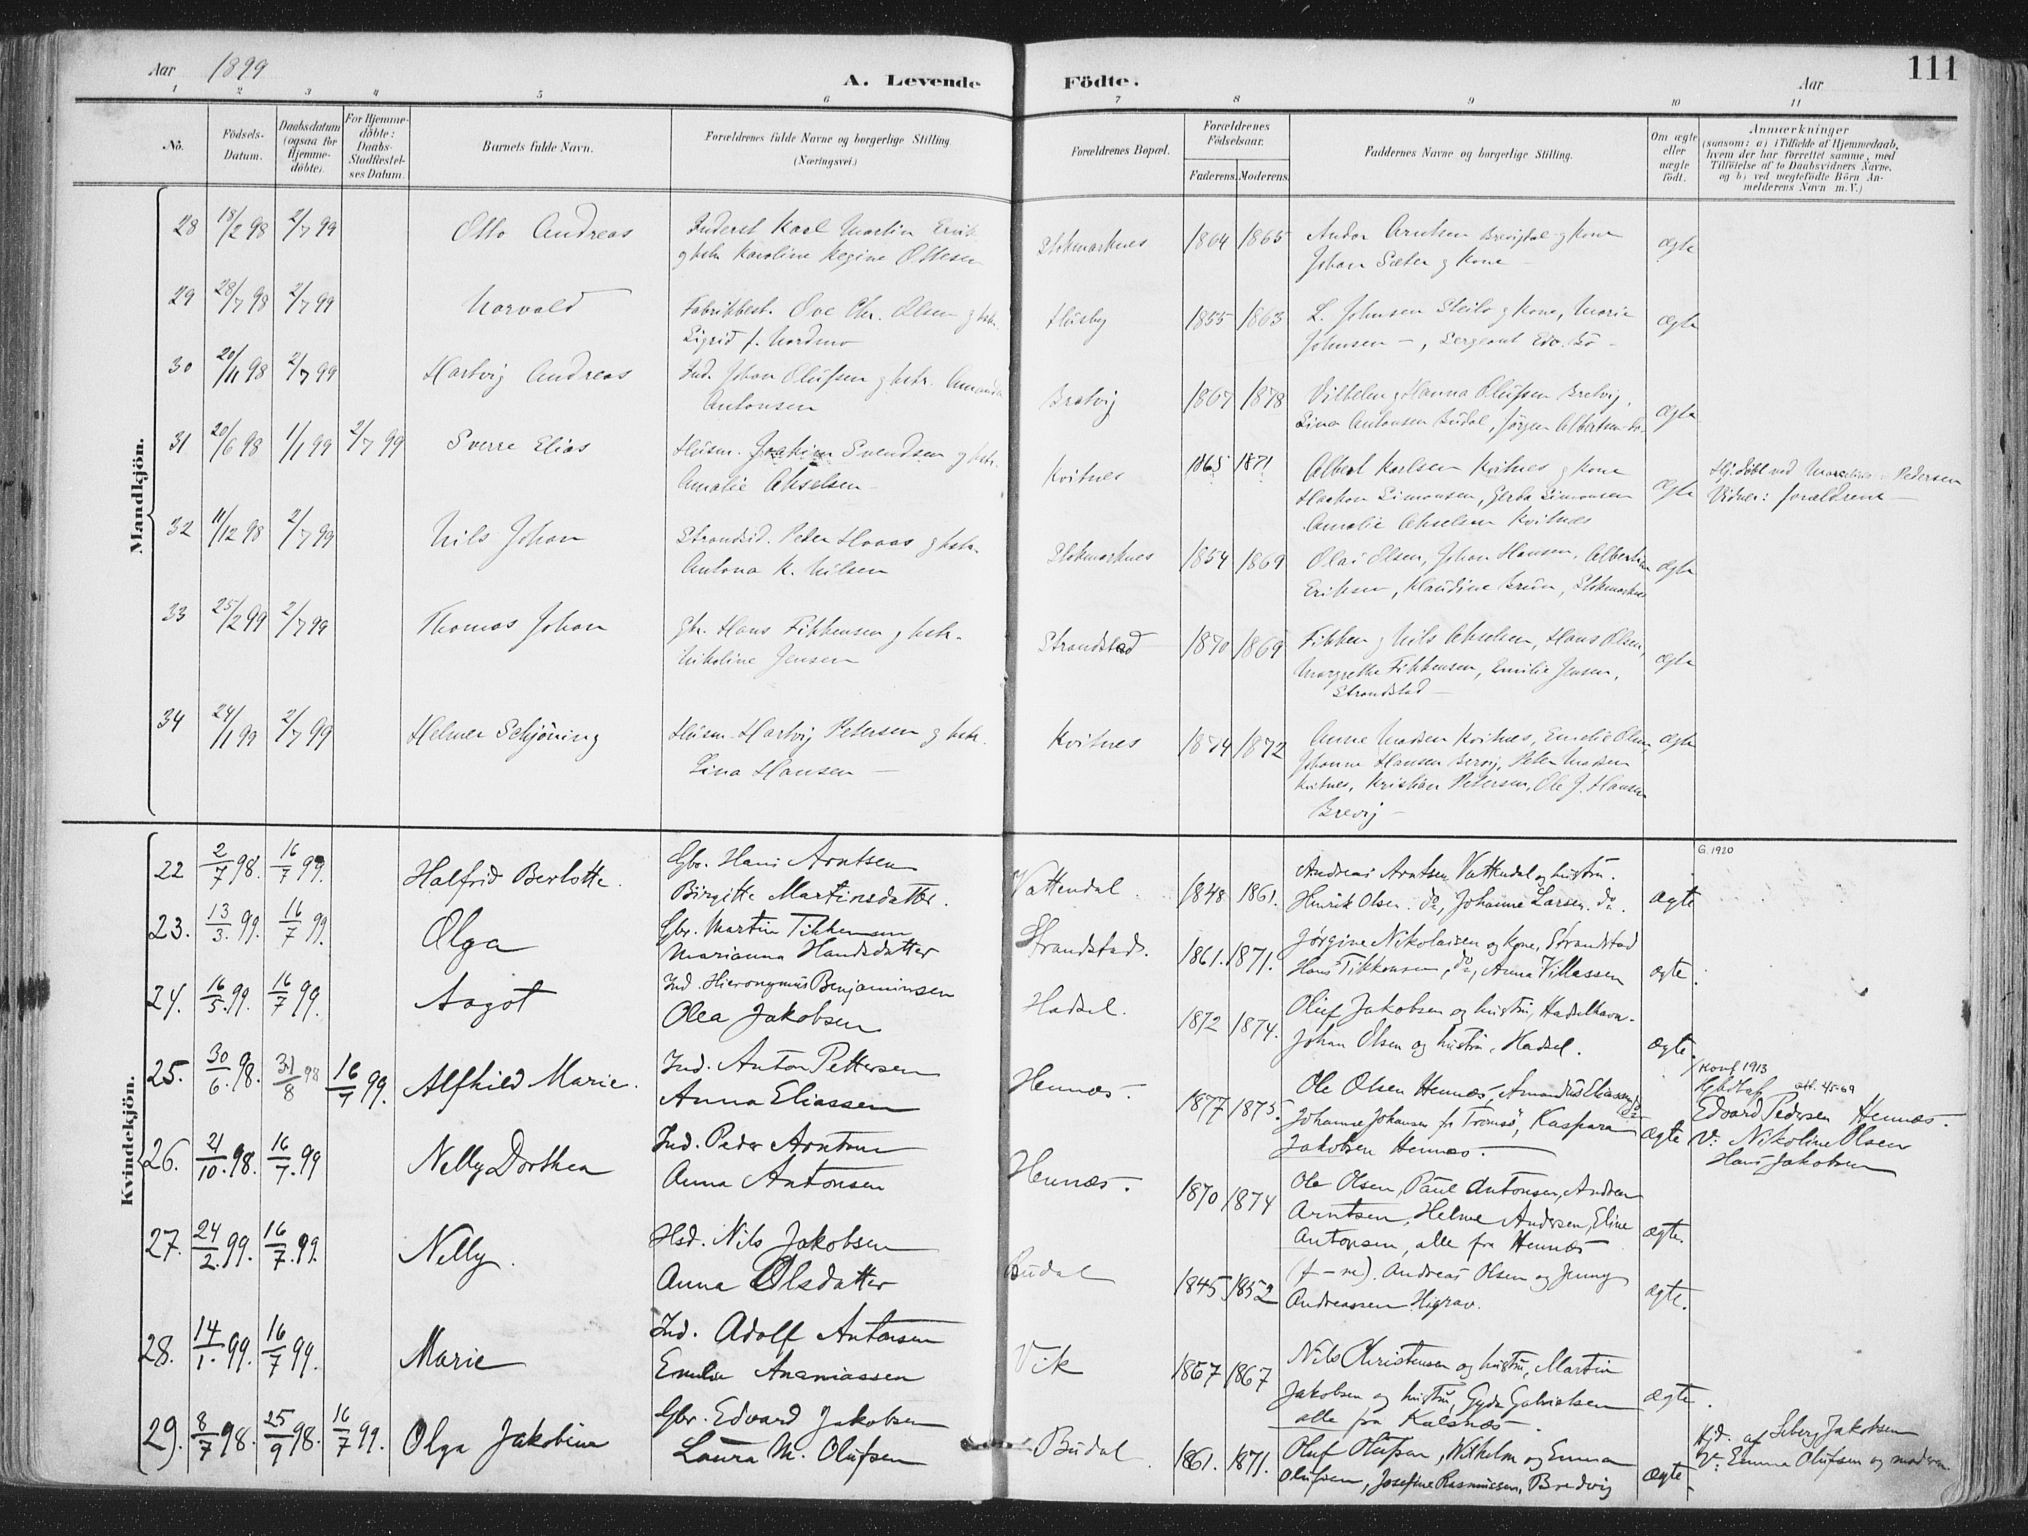 Aar 1899
A. Levende Födte.
Aar
111
1 2 3 4 5 6 7 8 9 10 11
No.
Födsels-Datum.
Daabsdatum (ogsaa for Hjemme-döbte).
For Hjemme-döbte: Daabs-Stadfæstel-ses Datum.
Barnets fulde Navn.
Forældrenes fulde Navne og borgerlige Stilling (Næringsvei.)
Forældrenes Bopæl.
Forældrenes Födselsaar.
Faderens. Moderens.
Faddernes Navne og borgerlige Stilling.
Om ægte eller uægte födt.
Anmærkninger
(saasom: a) i Tilfælde af Hjemmedaab,
hvem der har forrettet samme, med
Tilföielse af to Daabsvidners Navne,
og b) ved uægtefödte Börn An-
melderens Navn m. V.)
Mandkjön.
28 18/2 98 2/7 99 Otto Andreas Inderst Karl Martin Erik Stokmarknes 1864 1865 Andor Arntsen Brevigdal og Kone ægte
og hstr. Karoline Regine Ottesen Johan Sæter og Kone –
29 28/7 98 2/7 99 Norvald Fabrikbest. Ove Chr. Olsen og hstr. Husby 1855 1863 L. Johnsen Steilo og Kone, Marie ægte
Sigrid f. Nordmo Johnsen –, Sergeant Edv. Bö –
30 20/11 98 2/7 99 Hartvig Andreas Ind. Johan Olufsen og hstr. Amanda Bretvig 1867 1878 Vilhelm og Hanna Olufsen Bretvig, ægte
Antonsen Lina Antonsen Budal, Jörgen Albertsen do.
31 20/6 98 1/1 99 2/7 99 Sverre Elias Husm. Joakim Svendsen og hstr. Kvitnes 1865 1871 Albert Karlsen Kvitnes og Kone ægte Hj.döbt ved Pedersen
Amalie Akselsen – Haakon Simonsen, Gerda Simonsen Vidner: forældrene –
Amalie Akselsen Kvitnæs
32 11/12 98 2/7 99 Nils Johan Strandsid. Peder Haas og hstr. Stokmarknes 1854 1869 Olai Olsen, Johan Hansen, Albertine ægte
Antona K. Nilsen Eriksen, Klaudine Bruun, Stokmarknes
33 25/2 99 2/7 99 Thomas Johan Gbr. Hans Tikkensen og hstr. Strandstad 1870 1869 Tikken og Nils Akselsen, Hans Olsen, ægte
Nikoline Jensen Margrethe Tikkensen, Emilie Jensen,
Strandstad –
34 24/1 99 2/7 99 Helmer Schjöning Husm. Hartvig Petersen og hstr. Kvitnes 1874 1872 Anne Madsen Kvitnes, Emelie Olsen, ægte
Lina Hansen – Johanne Hansen Brevig, Peter Madsen
Kvitnes, Kristian Petersen, Ole J. Hansen
Brevig –
Kvindekjön.
G. 1920
22 2/7 98. 16/7 99. Halfrid Berlotte. Gbr. Hans Arntsen Vattendal. 1848 1861. Andreas Arntsen Vattendal og hustru. ægte
Birgitte Martinsdatter. Henrik Olsen. do, Johanne Larsen. do.
23. 13/3. 99. 16/7 99. Olga Gbr. Martin Tikkensen Strandstad. 1861. 1871. Jørgine Nikolaisen og Kone, Strandstad ægte.
Marianna Handsdatter Hans Tikkensen, do, Anna Villassen
24. 16/5. 99. 16/7 99. Aagot Ind. Hieronymus Benjaminsen Hadsel. 1872 1874. Oluf Jakobsen og hustru, Hadselhavn. ægte.
Olea Jakobsen Johan Olsen og hustru, Hadsel.
25. 30/6. 98. 31/8 98 16/7 99. Alfhild Marie. Ind. Anton Pettersen Hennæs. 1877 1875. Ole Olsen Hennæs, Amandus Eliassen do ægte
Anna Eliassen Johanne Johansen fr Tromsö, Kaspara
Jakobsen Hennæs. –
Konf 1913
att. 45-69
Edvard Pedersen Hennæs.
V: Nikoline Olsen
Hans Jakobsen
26. 21/10. 98. 16/7. 99 Nelly Dorthea Ind. Peder Arntsen Hennæs. 1870 1874 Ole Olsen, Paul Antonsen, Andrea ægte.
Anna Antonsen Arntsen, Helme Andersen, Eline
Antonsen, alle fra Hennæs
27. 24/2. 99. 16/7. 99. Nelly. Hsd. Nils Jakobsen Budal 1845 1852 (f – m). Andreas Olsen og Jenny ægte.
Anna Olsdatter Andreassen Higrav.
28. 14/1. 99. 16/7 99. Marie Ind. Adolf Antonsen Vik 1857 1867 Nils Christensen og hustru, Martin ægte.
Emelie Ananiassen Jakobsen og hustru, Gyda Gabrielsen
alle fra Kalsnæs –
29. 8/7 98. 25/9 98. 16/7 99. Olga Jakobine Gbr. Edvard Jakobsen Budal. 1861. 1871. Oluf Olufsen, Wilhelm og Emma ægte.
Laura M. Olufsen Olufsen, Josefine Rasmussen, Bredvig
Hjd. af Seberg Jakobsen
V: Emma Olufsen og moderen